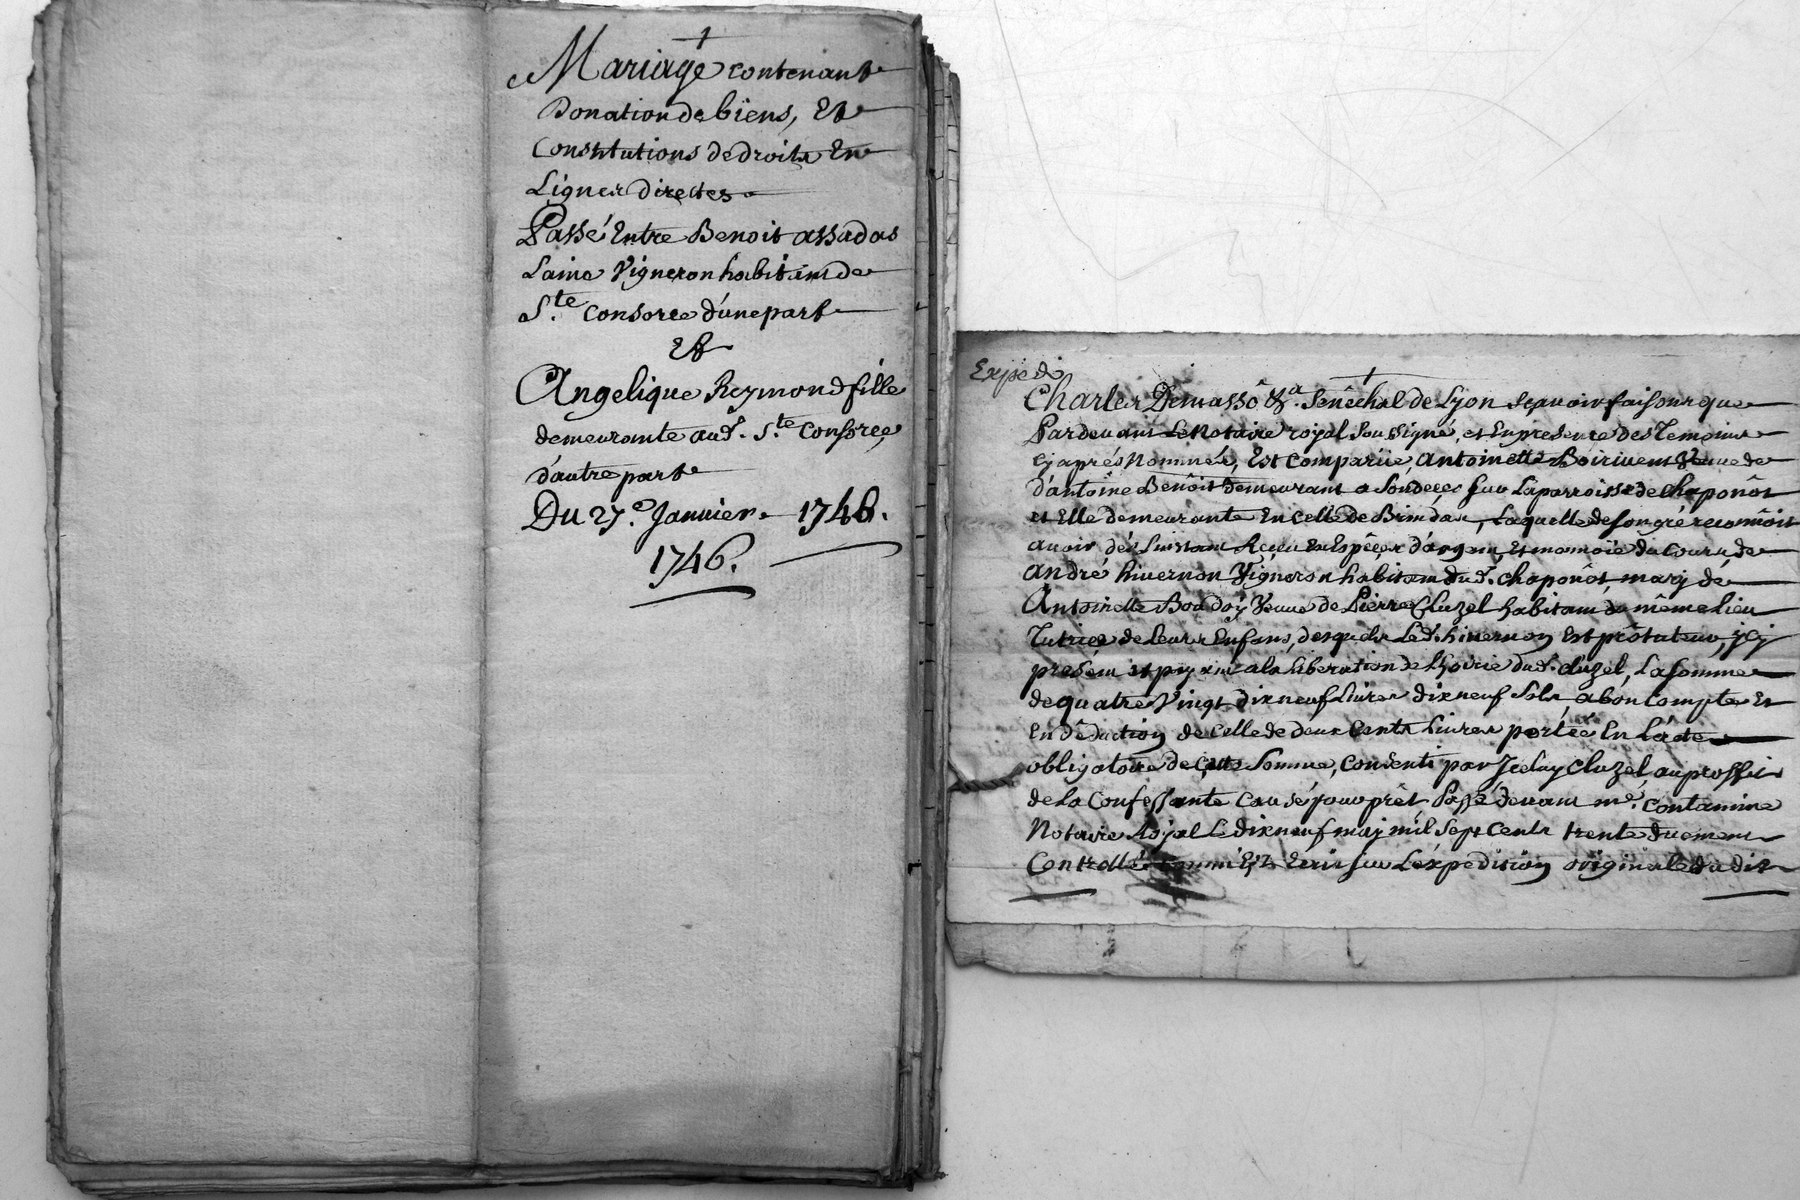 Mariage contenant
Donation de biens, Et
Constitutions de droits En
Lignes directes
Passé Entre Benoit assadas
Laine Vigneron habitant de
S.te Consorce d'une part
Et
Angelique Reymond fille
demeurante aud. S.te Consorce,
d'autre part
Du 27.e Janvier. 1746.
1746.
Expedié
Charles Demasso &a. Senêchal de Lyon sçavoir faisons que
Pardevant Le Notaire royal Soussigné, et En presence des Temoins
Cy aprés Nommés, Est Comparüe, Antoinette Boirivent Veuve de
d'antoine Benoit demeurant a Soudecec sur La parroisse de Chaponôst
et Elle demeurante En Celle de Brindas, Laquelle de son gré reconnôit
avoir dés Linstant Reçeu En Espêces d'argent, et monnoie du Cours de
André hivernon Vigneron habitant dud. Chaponôst mary dé
Antoinette Veuve de Pierre Cluzel habitant du même lieu
Tutrice de Leurs Enfans, desquels Led. hivernon Est prôtuteur, jcy
present et payant a la Liberation de Lhoirie dud. Cluzel, La somme
de quatre Vingt dixneuf Livres dixneuf Sols, a bon Compte Et
En déduction de Celle de deux Cents Livres portée En Lacte
obligatoire de Cette Somme, Consenti par Jceluy Cluzel, au proffit
de La Confessante Causé pour prêt Passé devant me. Contamine
Notaire Royal Le dixneuf may mil Sept Cents trente duement
Controllé Ecrit sur L'éxpedition originale du dit